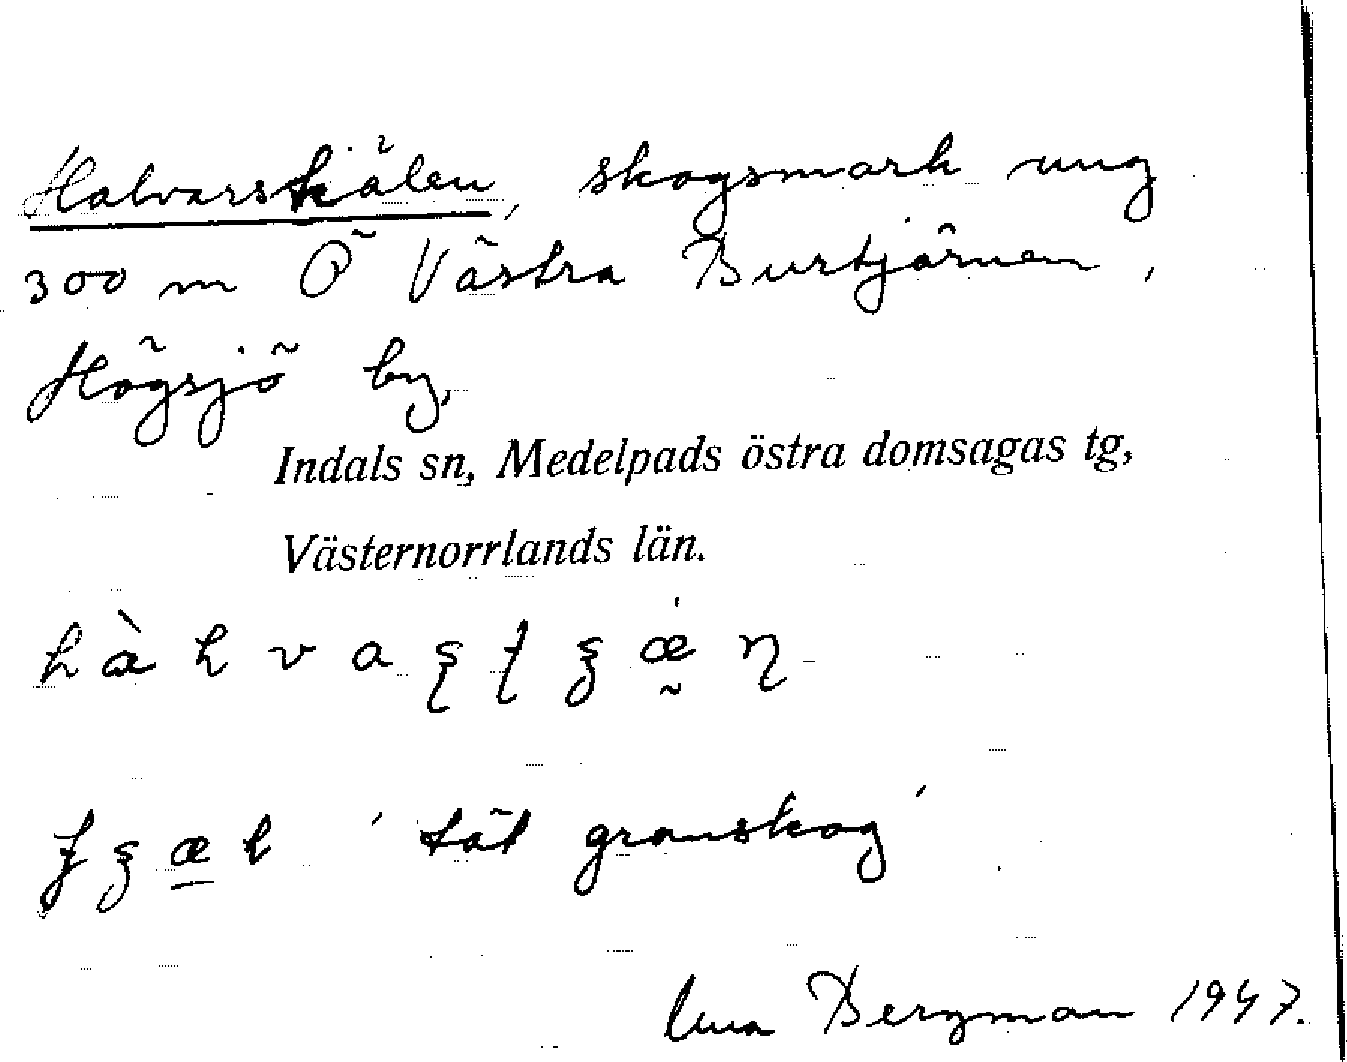 Halvarskälen, skogsmark ung
300 m Ö Västra Burtjärnen,
Högsjö by,
Indals sn, Medelpads östra domsagas tg,
Västernorrlands län.
'tät granskog'
Bergman 1947.